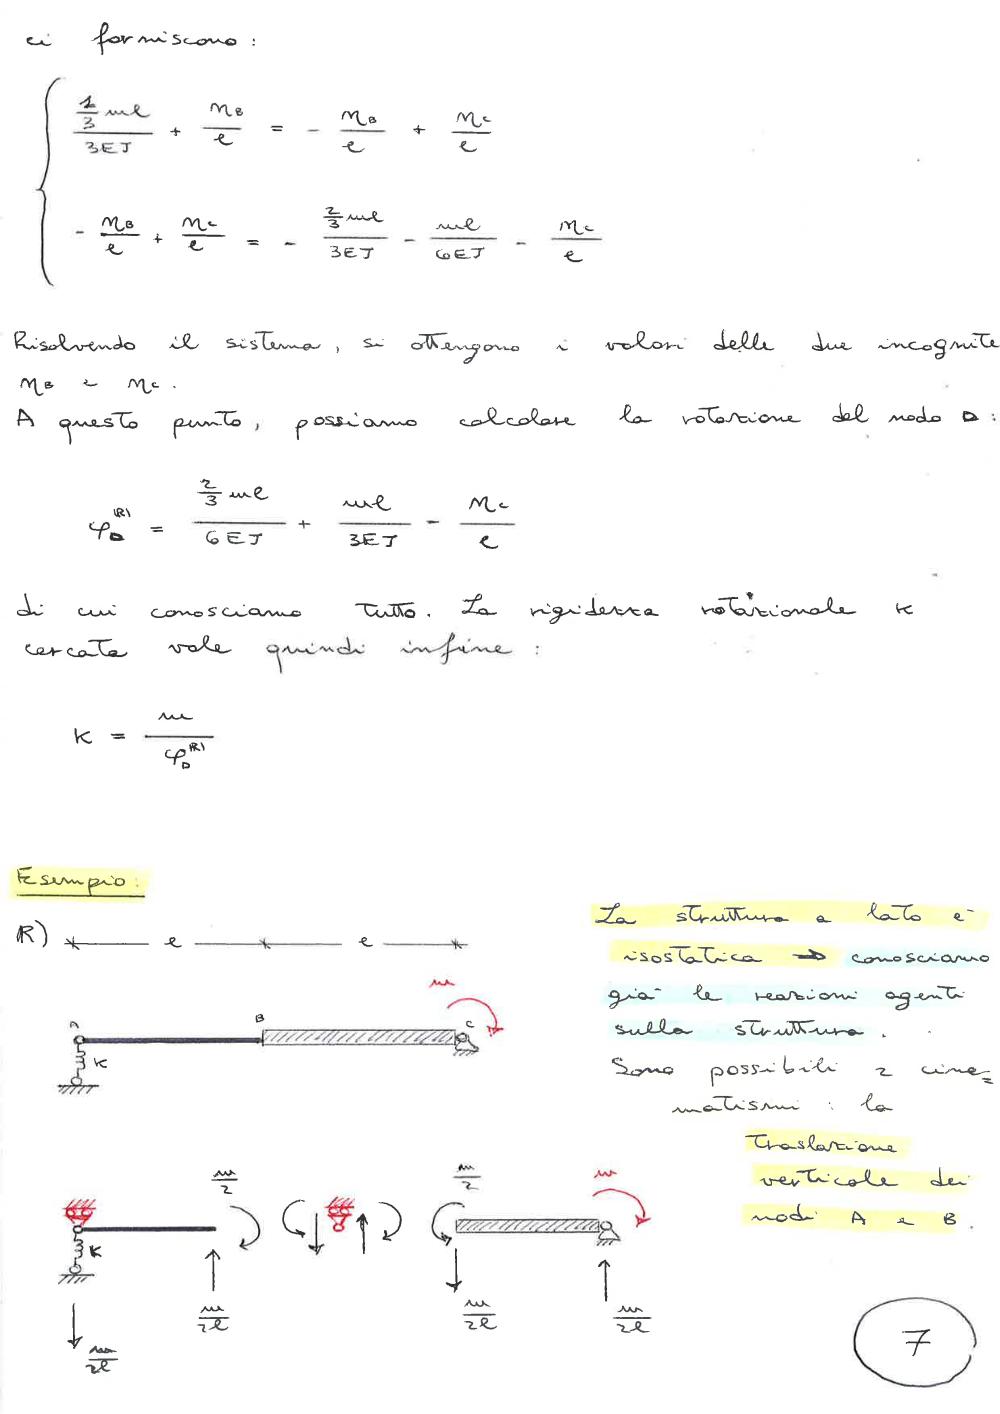 ci forniscono:
{ (1/3 ml)/(3EJ) + η_B/l = - η_B/l + η_C/l
- η_B/l + η_C/l = - (2/3 ml)/(3EJ) - ml/(6EJ) - η_C/l
Risolvendo il sistema, si ottengono i valori delle due incognite
η_B e η_C.
A questo punto, possiamo calcolare la rotazione del nodo D:
φ_D^(R) = (2/3 ml)/(6EJ) + ml/(3EJ) - η_C/l
di cui conosciamo tutto. La rigidezza rotazionale K
cercata vale quindi infine:
K = m/φ_D^(R)
Esempio:
R) l l
La struttura a lato è
isostatica → conosciamo
già le reazioni agenti
sulla struttura.
Sono possibili 2 cine=
matismi: la
traslazione
verticale dei
nodi A e B.
m
A B C
K
m/2 m/2 m
K
m/2l m/2l m/2l m/2l
7